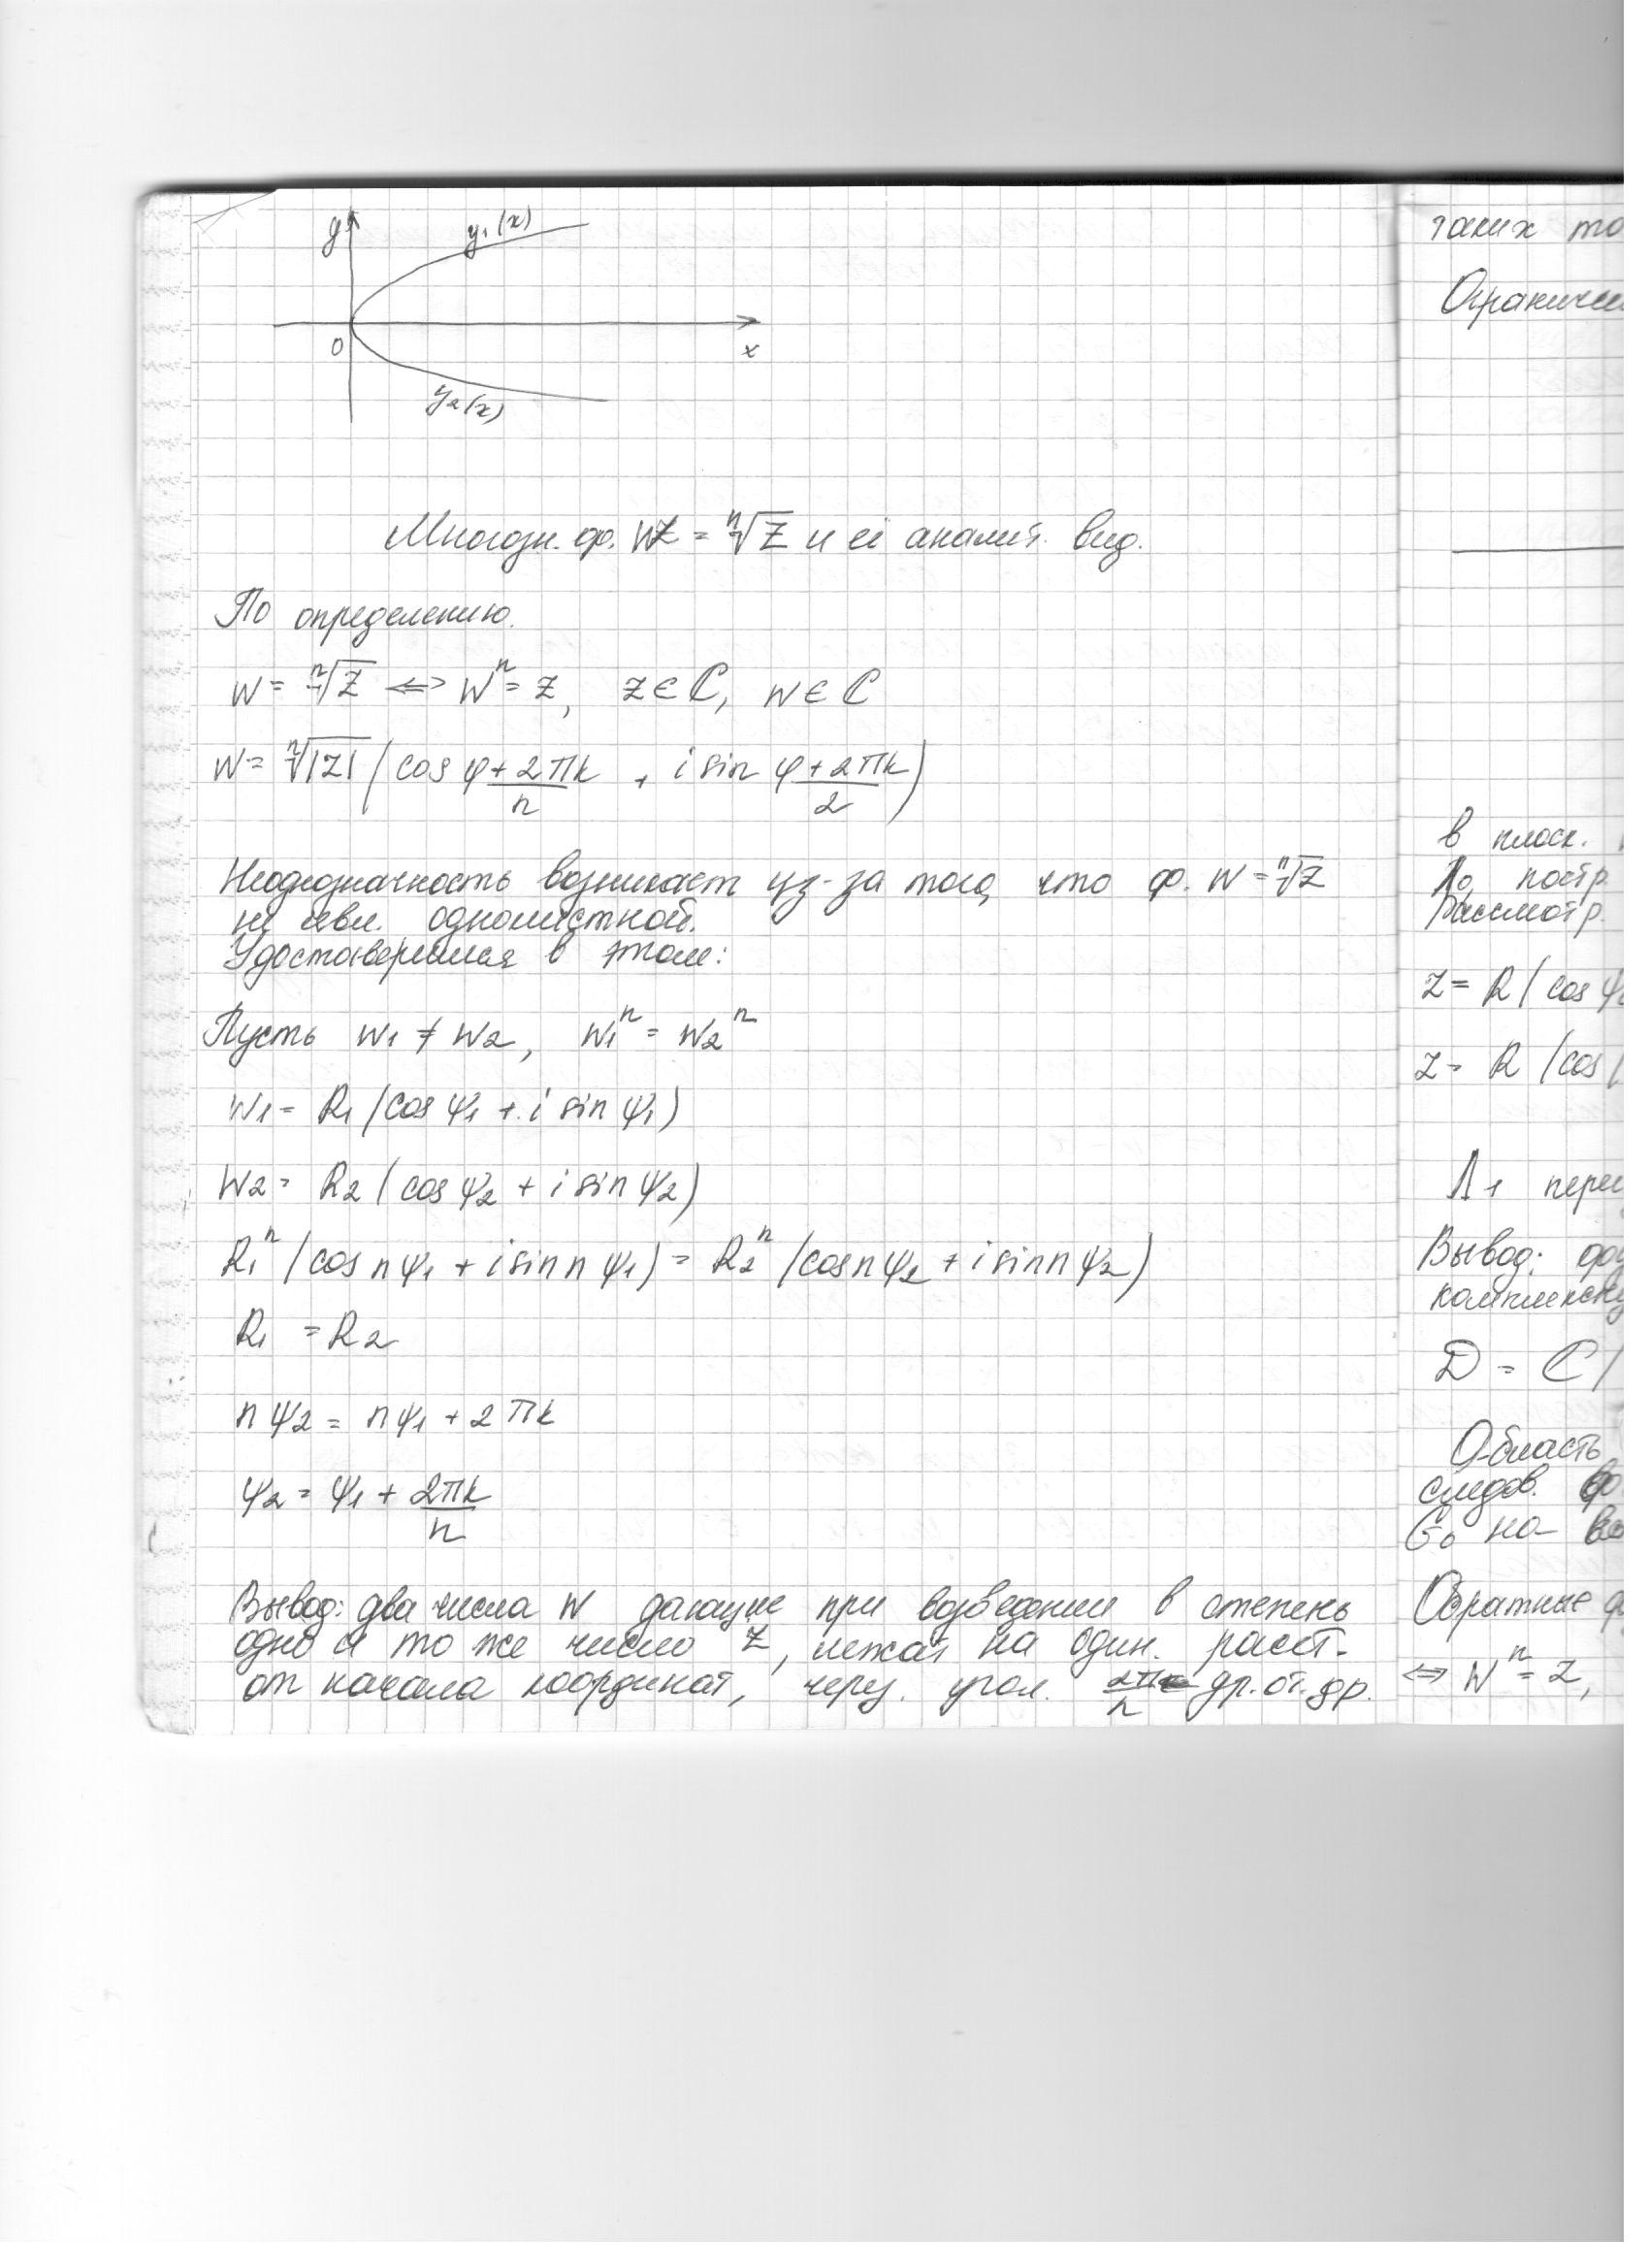 y
y₁(x)
0
x
y₂(x)
Многозн. ф. W = ⁿ√Z и её аналит. вид.
По определению.
W = ⁿ√Z ⇔ Wⁿ = Z, Z ∈ ℂ, W ∈ ℂ
W = ⁿ√|Z| (cos (φ + 2πk)/n + i sin (φ + 2πk)/2)
Неоднозначность возникает из-за того, что ф. W = ⁿ√Z
не явл. однолистной.
Удостоверимся в этом:
Пусть W₁ ≠ W₂, W₁ⁿ = W₂ⁿ
W₁ = R₁ (cos ψ₁ + i sin ψ₁)
W₂ = R₂ (cos ψ₂ + i sin ψ₂)
R₁ⁿ (cos nψ₁ + i sin nψ₁) = R₂ⁿ (cos nψ₂ + i sin nψ₂)
R₁ = R₂
nψ₂ = nψ₁ + 2πk
ψ₂ = ψ₁ + 2πk/n
Вывод: два числа W дающие при возведении в степень
одно и то же число Z, лежат на один. расст.
от начала координат, через. угол. 2π/n др. от. др.
таких то
Ограничен
в плоск.
Λ₀, постр.
Рассмотр.
Z = R (cos ψ
Z = R (cos (
Λ₁ пере
Вывод: фу
комплексну
D = ℂ /
Область
следов.
G₀ на
Обратные ф
⇔ Wⁿ = Z,